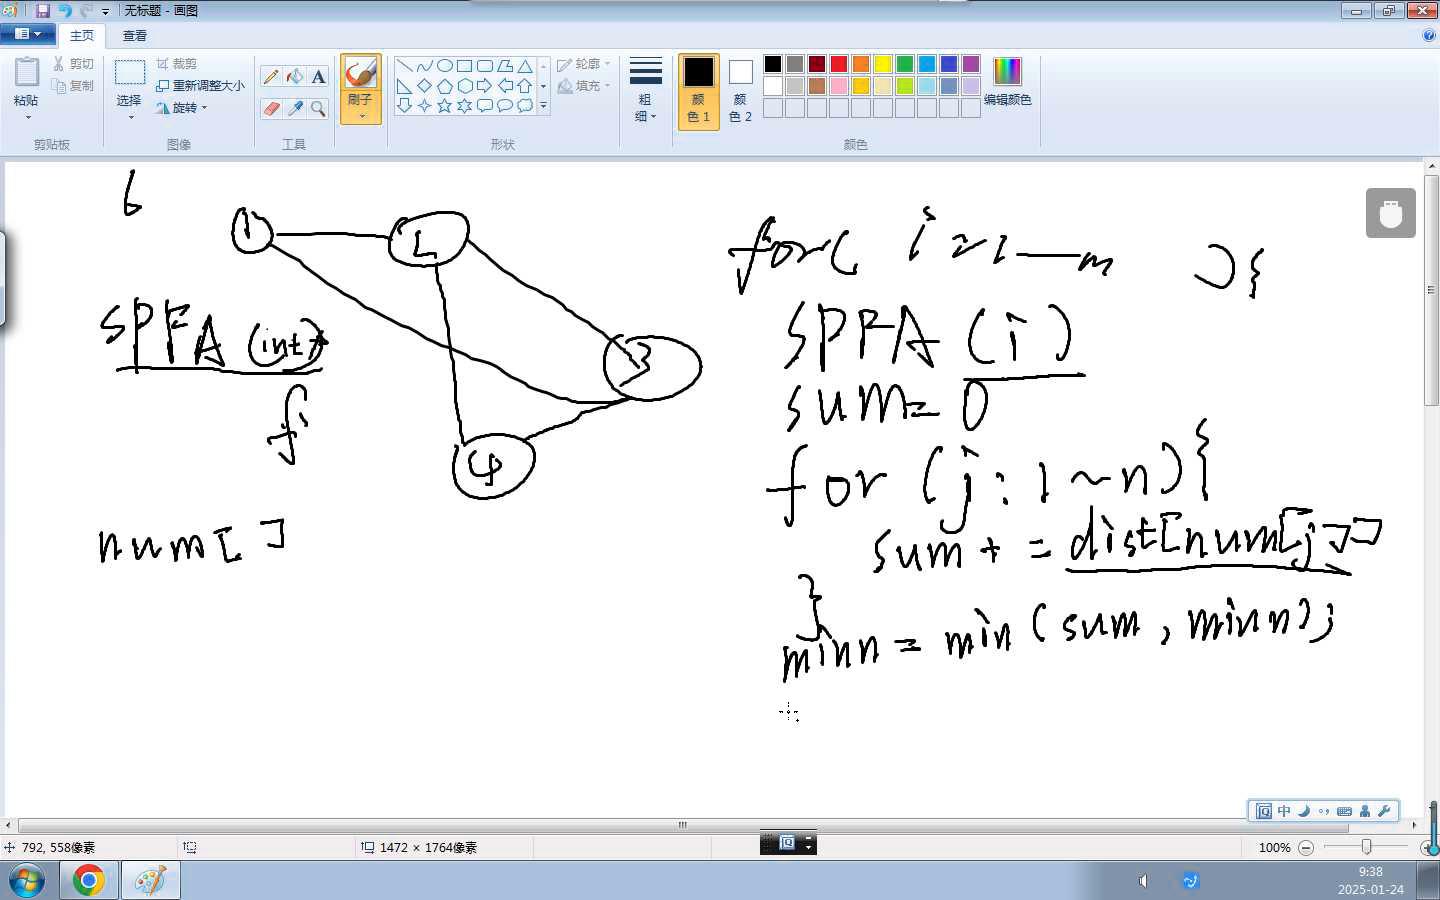 无标题 - 画图
主页
查看
粘贴
剪切
复制
剪贴板
选择
裁剪
重新调整大小
旋转
图像
A
工具
刷子
形状
轮廓
填充
粗
细
颜
色 1
颜
色 2
编辑颜色
颜色
6
1
2
3
4
SPFA (int)
num[ ]
for( i=1—m ){
SPFA (i)
sum=0
for (j:1~n){
sum+=dist[num[j]]
}
minn = min(sum, minn);
中
792, 558像素
1472 × 1764像素
100%
9:38
2025-01-24